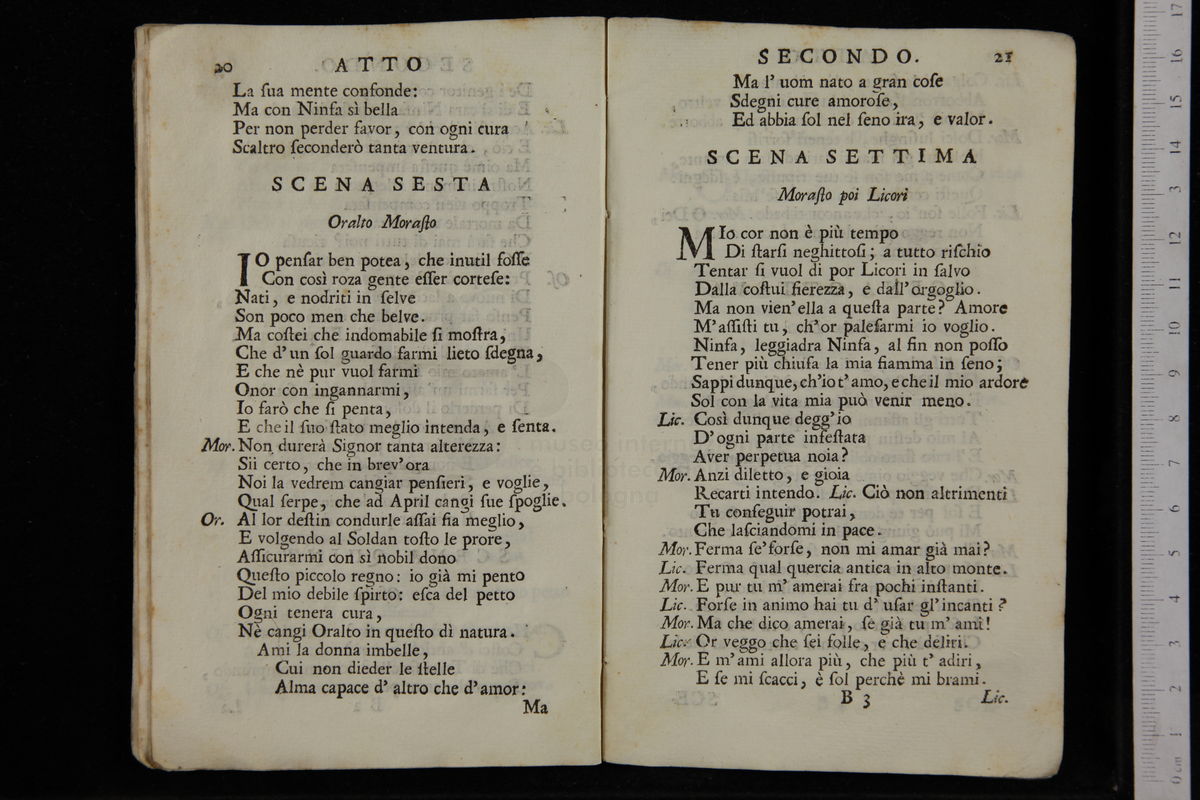 20 ATTO
La ſua mente confonde:
Ma con Ninfa sì bella
Per non perder favor, con ogni cura
Scaltro ſeconderò tanta ventura.
SCENA SESTA
Oralto Moraſto
IO penſar ben potea, che inutil foſſe
Con così roza gente eſſer corteſe:
Nati, e nodriti in ſelve
Son poco men che belve.
Ma coſtei che indomabile ſi moſtra,
Che d'un ſol guardo farmi lieto ſdegna,
E che nè pur vuol farmi
Onor con ingannarmi,
Io farò che ſi penta,
E che il ſuo ſtato meglio intenda, e ſenta.
Mor. Non durerà Signor tanta alterezza:
Sii certo, che in brev'ora
Noi la vedrem cangiar penſieri, e voglie,
Qual ſerpe, che ad April cangi ſue ſpoglie.
Or. Al lor deſtin condurle aſſai fia meglio,
E volgendo al Soldan toſto le prore,
Aſſicurarmi con sì nobil dono
Queſto piccolo regno: io già mi pento
Del mio debile ſpirto: eſca del petto
Ogni tenera cura,
Nè cangi Oralto in queſto dì natura.
Ami la donna imbelle,
Cui non dieder le ſtelle
Alma capace d' altro che d'amor:
Ma
SECONDO. 21
Ma l' uom nato a gran coſe
Sdegni cure amoroſe,
Ed abbia ſol nel ſeno ira, e valor.
SCENA SETTIMA
Moraſto poi Licori
MIo cor non è più tempo
Di ſtarſi neghittoſi; a tutto riſchio
Tentar ſi vuol di por Licori in ſalvo
Dalla coſtui fierezza, e dall'orgoglio.
Ma non vien'ella a queſta parte? Amore
M'aſſiſti tu, ch'or paleſarmi io voglio.
Ninfa, leggiadra Ninfa, al fin non poſſo
Tener più chiuſa la mia fiamma in ſeno;
Sappi dunque, ch'io t'amo, e che il mio ardore
Sol con la vita mia può venir meno.
Lic. Così dunque degg'io
D'ogni parte infeſtata
Aver perpetua noia?
Mor. Anzi diletto, e gioia
Recarti intendo. Lic. Ciò non altrimenti
Tu conſeguir potrai,
Che laſciandomi in pace.
Mor. Ferma ſe' forſe, non mi amar già mai?
Lic. Ferma qual quercia antica in alto monte.
Mor. E pur tu m' amerai fra pochi inſtanti.
Lic. Forſe in animo hai tu d' uſar gl'incanti?
Mor. Ma che dico amerai, ſe già tu m' ami!
Lic. Or veggo che ſei folle, e che deliri.
Mor. E m'ami allora più, che più t' adiri,
E ſe mi ſcacci, è ſol perchè mi brami.
B 3 Lic.